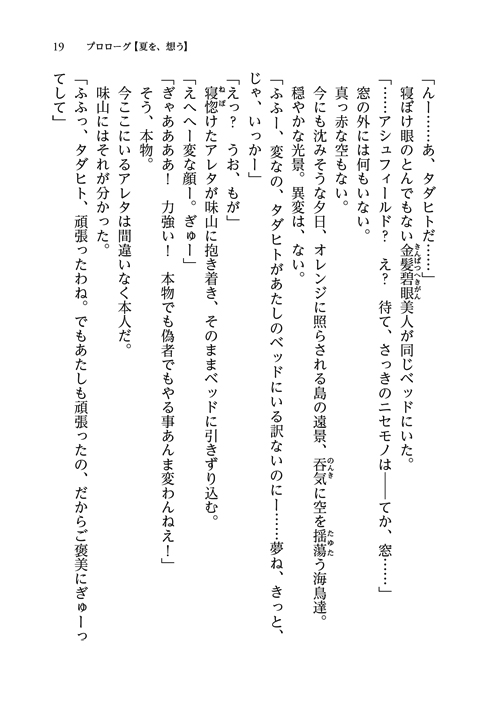 19　プロローグ【夏を、想う】
「んー……あ、タダヒトだ……」
寝ぼけ眼のとんでもない金髪碧眼美人が同じベッドにいた。
「……アシュフィールド？　え？　待て、さっきのニセモノは――てか、窓……」
窓の外には何もいない。
真っ赤な空もない。
今にも沈みそうな夕日、オレンジに照らされる島の遠景、呑気に空を揺蕩う海鳥達。
穏やかな光景。異変は、ない。
「ふふー、変なの、タダヒトがあたしのベッドにいる訳ないのにー……夢ね、きっと、
じゃ、いっかー」
「えっ？　うお、もが」
寝惚けたアレタが味山に抱き着き、そのままベッドに引きずり込む。
「えへへー変な顔ー。ぎゅー」
「ぎゃああああ！　力強い！　本物でも偽者でもやる事あんま変わんねえ！」
そう、本物。
今ここにいるアレタは間違いなく本人だ。
味山にはそれが分かった。
「ふふっ、タダヒト、頑張ったわね。でもあたしも頑張ったの、だからご褒美にぎゅーっ
てして」